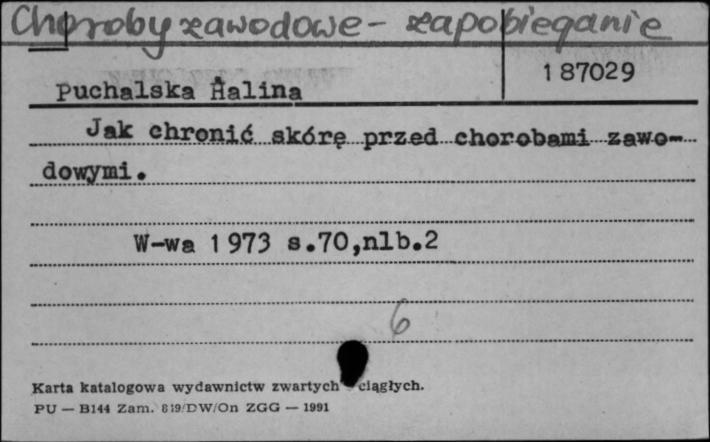 Choroby zawodowe - zapobieganie
187029
Puchalska Halina
Jak chronić skórę przed chorobami zawo-
dowymi.
W-wa 1973 s.70,nlb.2
6
Karta katalogowa wydawnictw zwartych ciągłych.
PU — B144 Zam. 819/DW/On ZGG — 1991